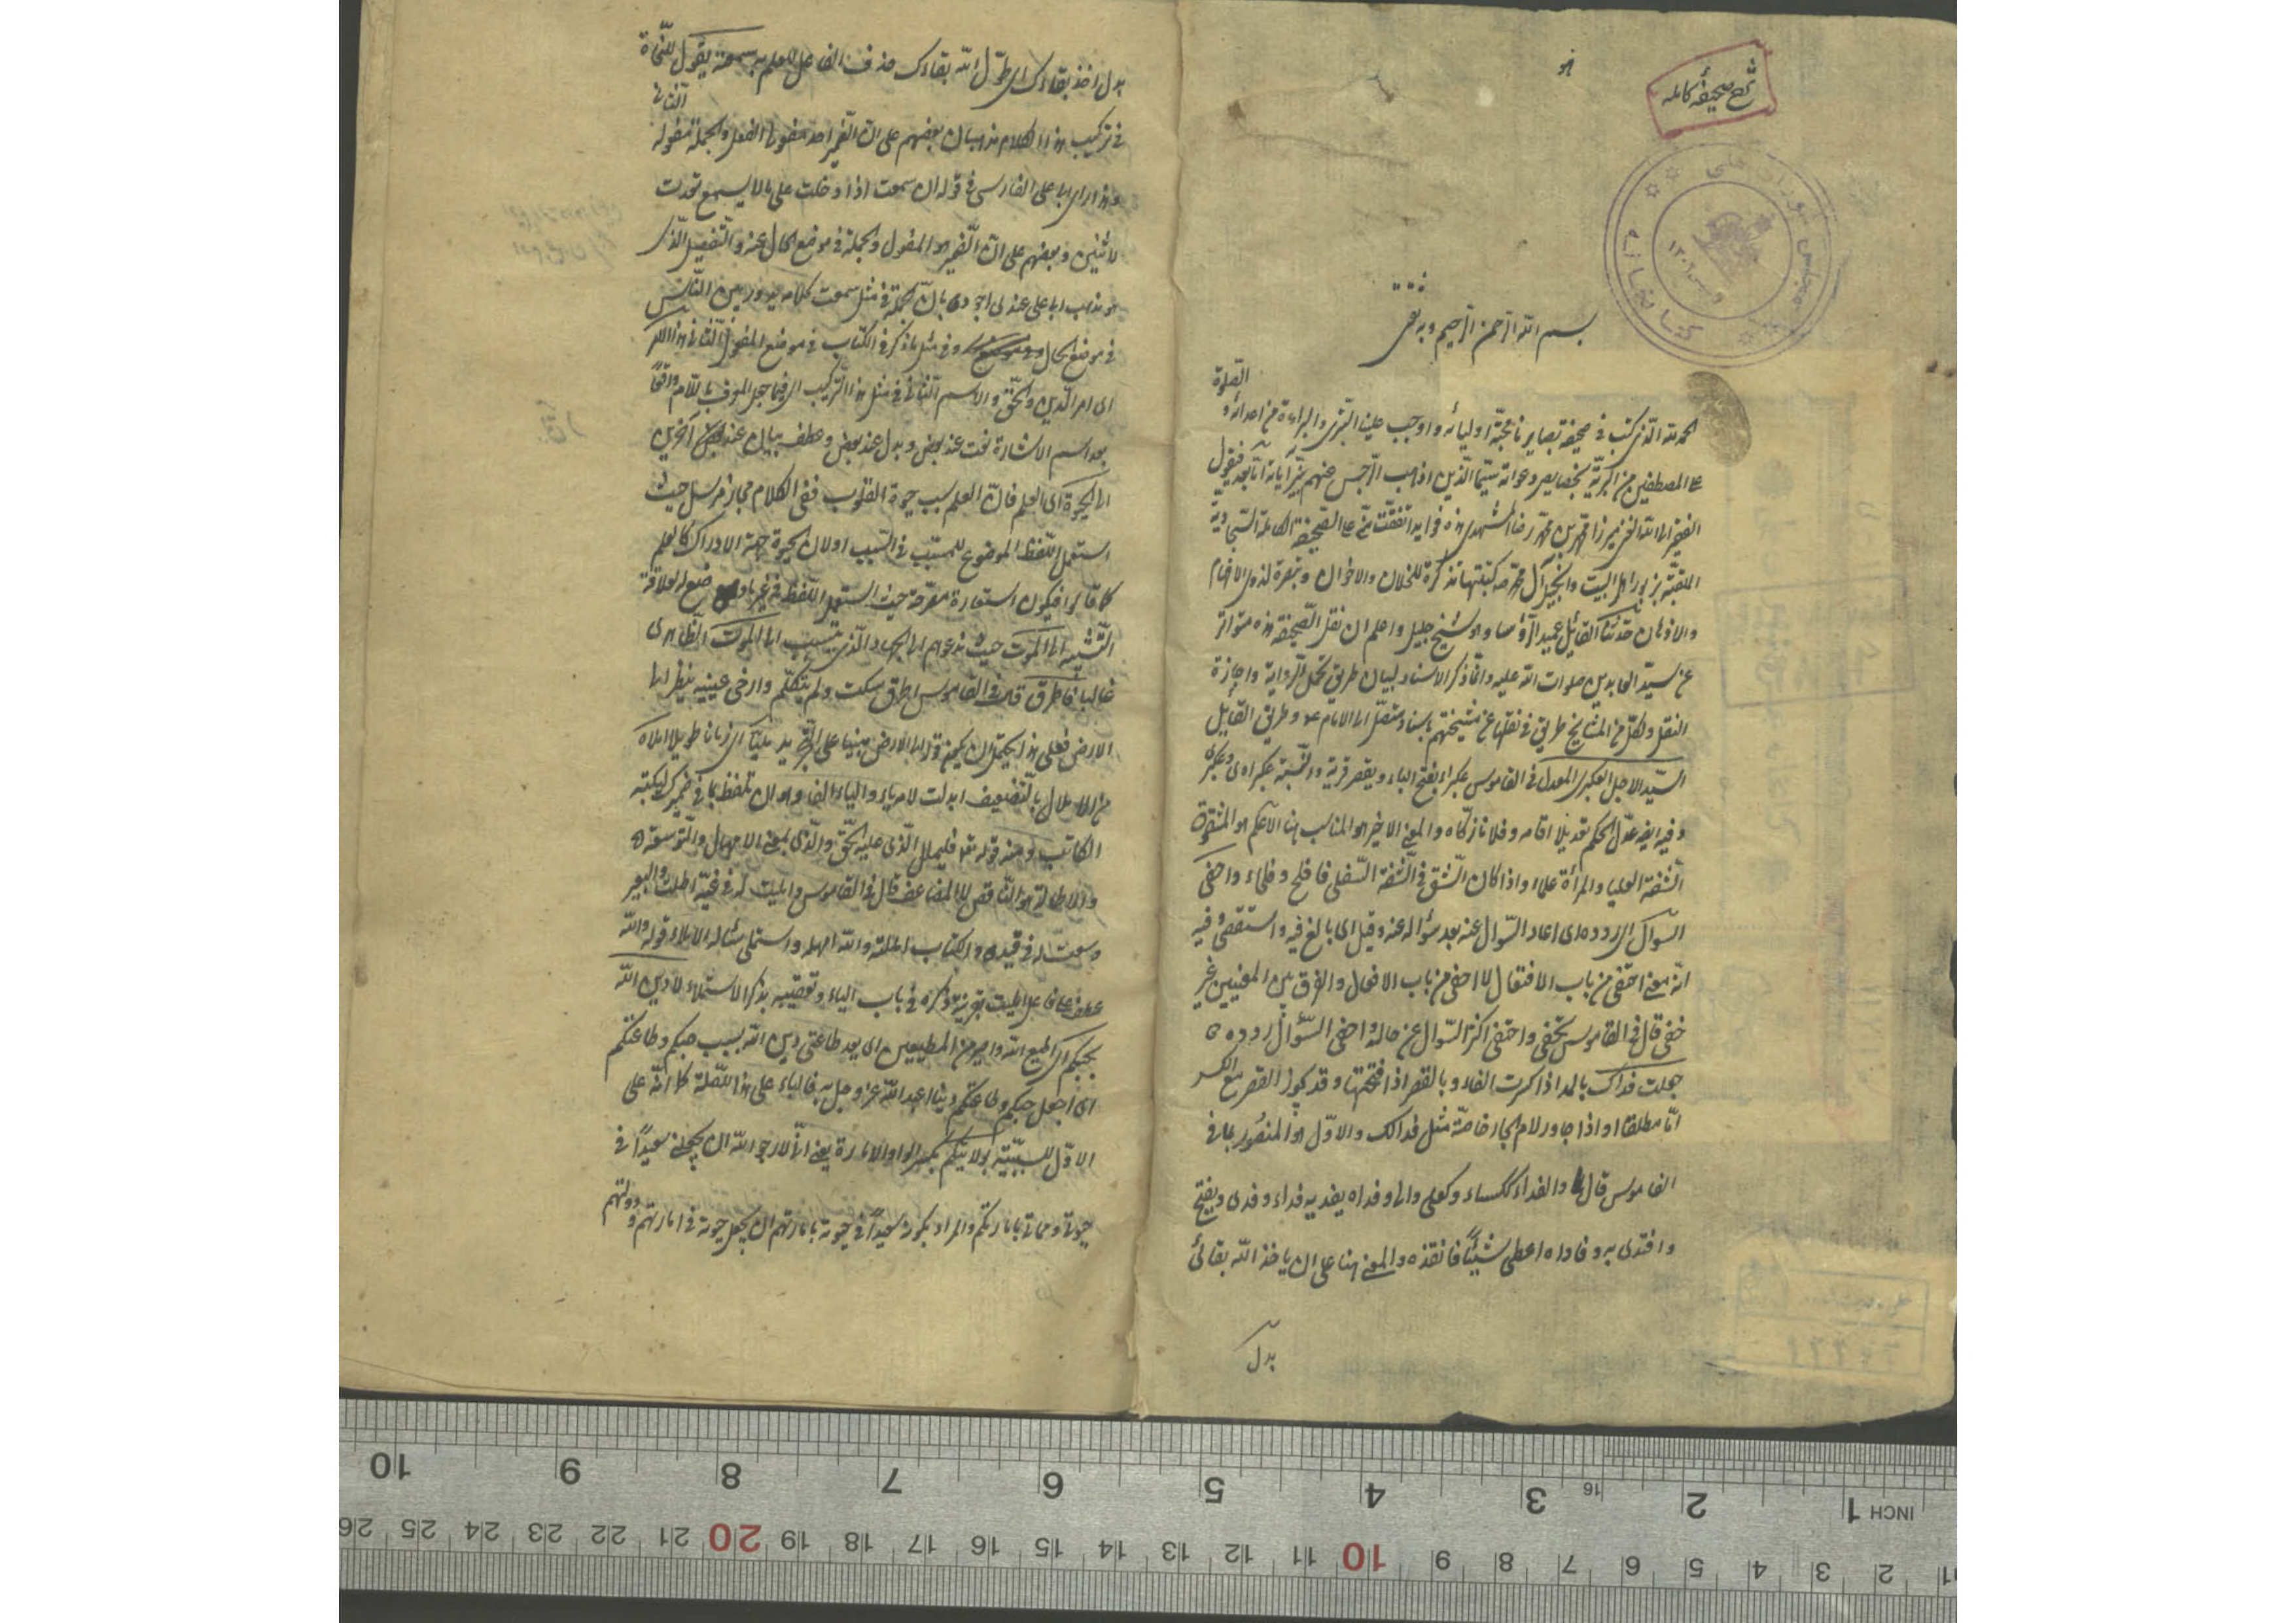 شرح صحیفه کامله
کتابخانه مجلس شورای ملی
۱۳۰۲
بسم الله الرحمن الرحیم وبه ثقتی
الحمد لله الذی کتب فی صحیفة بصایرنا محبة اولیائه و اوجب علینا التبری والبراءة من اعدائه و الصلوة
علی المصطفین من البریة بخصایص دعواته سیما الذین اذهب الرجس عنهم بنیر آیاته اما بعد فیقول
الفقیر الی الله الغنی میرزا محمد بن محمد رضا المشهدی هذه فواید اتفقت منی علی الصحیفة الکاملة السجادیة
الملقبة بزبور اهل البیت وانجیل آل محمد ص کتبتها تذکرة للخلان والاخوان وتبصرة لذوی الافهام
والاذهان حدثنا القائل عمید الرؤسا وهو شیخ جلیل واعلم ان نقل الصحیفة هذه متواتر
عن سید العابدین صلوات الله علیه وانما ذکر الاسناد لبیان طریق تحمل الروایة واجازة
النقل ولکل من المشایخ طریق فی نقلها عن مشیختهم باسناد متصل الی الامام ع وطریق القایل
السید الاجل العکبری المعدل فی القاموس عکبراء بفتح الباء ویقصر قریة والنسبة عکبراوی وعکبری
وفیه ایضا عدل الحکم تعدیلا اقامه وفلانا زکاه والمعنی الاخیر هو المناسب هنا الاعلم هو المشقوق
الشفة العلیا والمرأة علماء واذا کان الشق فی الشفة السفلی فافلح وفلحاء واحفی
السؤال ای ردده ای اعاد السؤال عنه بعد سؤاله عنه وقیل ای بالغ فیه واستقصی وفیه
انه بمعنی احتفی من باب الافتعال لا احفی من باب الافعال والفرق بین المعنیین غیر
خفی قال فی القاموس تحفی واحتفی اکثر السؤال عن حاله واحفی السؤال ردده
جعلت فداک بالمد اذا کسرت الفاء وبالقصر اذا فتحتها وقد یجوز القصر مع الکسر
اما مطلقا او اذا جاور لام الجار خاصة مثل فدالک والاول هو المنصور بما فی
القاموس قال والفداء ککساء وکعلی والی وفداه یفدیه فداء وفدی ویفتح
وافتدی به وفاداه اعطی شیئا فانقذه والمعنی هنا علی ان یاخذ الله بقائی
بدل
بدل اخذ بقاءک ای طول الله بقاءک حذف الفاعل للعلم به سمعته یقول للنحاة
فی ترکیب هذا الکلام مذهبان بعضهم علی ان الضمیر احد مفعولی الفعل والجملة مفعوله الثانی
وهذا رای ابی علی الفارسی فی قوله ان سمعت اذا دخلت علی ما لا یسمع تعدت
لاثنین وبعضهم علی ان الضمیر هو المفعول والجملة فی موضع الحال عنه والتفصیل الذی
هو مذهب ابی علی عندی اجود بان الجملة فی مثل سمعت کلامه یدور بین الناس
فی موضع الحال وفی مثل ما ذکر فی الکتاب فی موضع المفعول الثانی هذا الامر
ای امر الدین والحق والاسم الثانی فی مثل هذا الترکیب ای فیما جعل المعرف باللام واقعا
بعد اسم الاشارة نعت عند بعض وبدل عند بعض وعطف بیان عند آخرین
الی الحیوة ای العلم فان العلم سبب حیوة القلوب ففی الکلام مجاز مرسل حیث
استعمل اللفظ الموضوع للمسبب فی السبب اولان الحیوة جهة الادراک کالعلم
کما قالوا فیکون استعارة مصرحة حیث استعمل اللفظ فی غیر ما وضع له لعلاقة
التشبیه الی الموت حیث تدعوهم الی الجهاد الذی یتسبب الی الموت الظاهری
غالبا فاطرق قال فی القاموس اطرق سکت ولم یتکلم وارخی عینیه ینظر الی
الارض فعلی هذا یحتمل ان یکون قوله الی الارض مبنیا علی التجرید ملیا ای زمانا طویلا املاه
من الاملال بالتضعیف ابدلت لامه یاء والیاء الفا وهو ان تلفظ بما فی ضمیرک لیکتبه
الکاتب ومنه قوله تعالی فلیملل الذی علیه الحق والذی بمعنی الامهال والتوسعة
والاطالة هو الناقص لا المضاعف قال فی القاموس واملیت له فی غیه اطلت والبعیر
وسعت له فی قیده والکتاب امللته والله امهله واستملی سئاله الاملاء قوله والله
عطف علی فاعل املیت بقرینة ذکره فی باب الیاء وتعقیبه بذکر الاستملاء لادین الله
بحبکم ای اطیع الله واصیر من المطیعین ای یعد طاعتی دین الله بسبب حبکم وطاعتکم
ای اجعل حبکم وطاعتکم دینا اعبد الله عز وجل به فالباء علی هذا للصلة کما انه علی
الاول للسببیة بولایتکم بکسر الواو الامارة یعنی انی لارجو الله ان یجعلنی سعیدا فی
حیوتی ومماتی بامارتکم والمراد بکونه سعیدا فی حیوته بامارتهم ان یجعل حیوته فی امارتهم ودولتهم